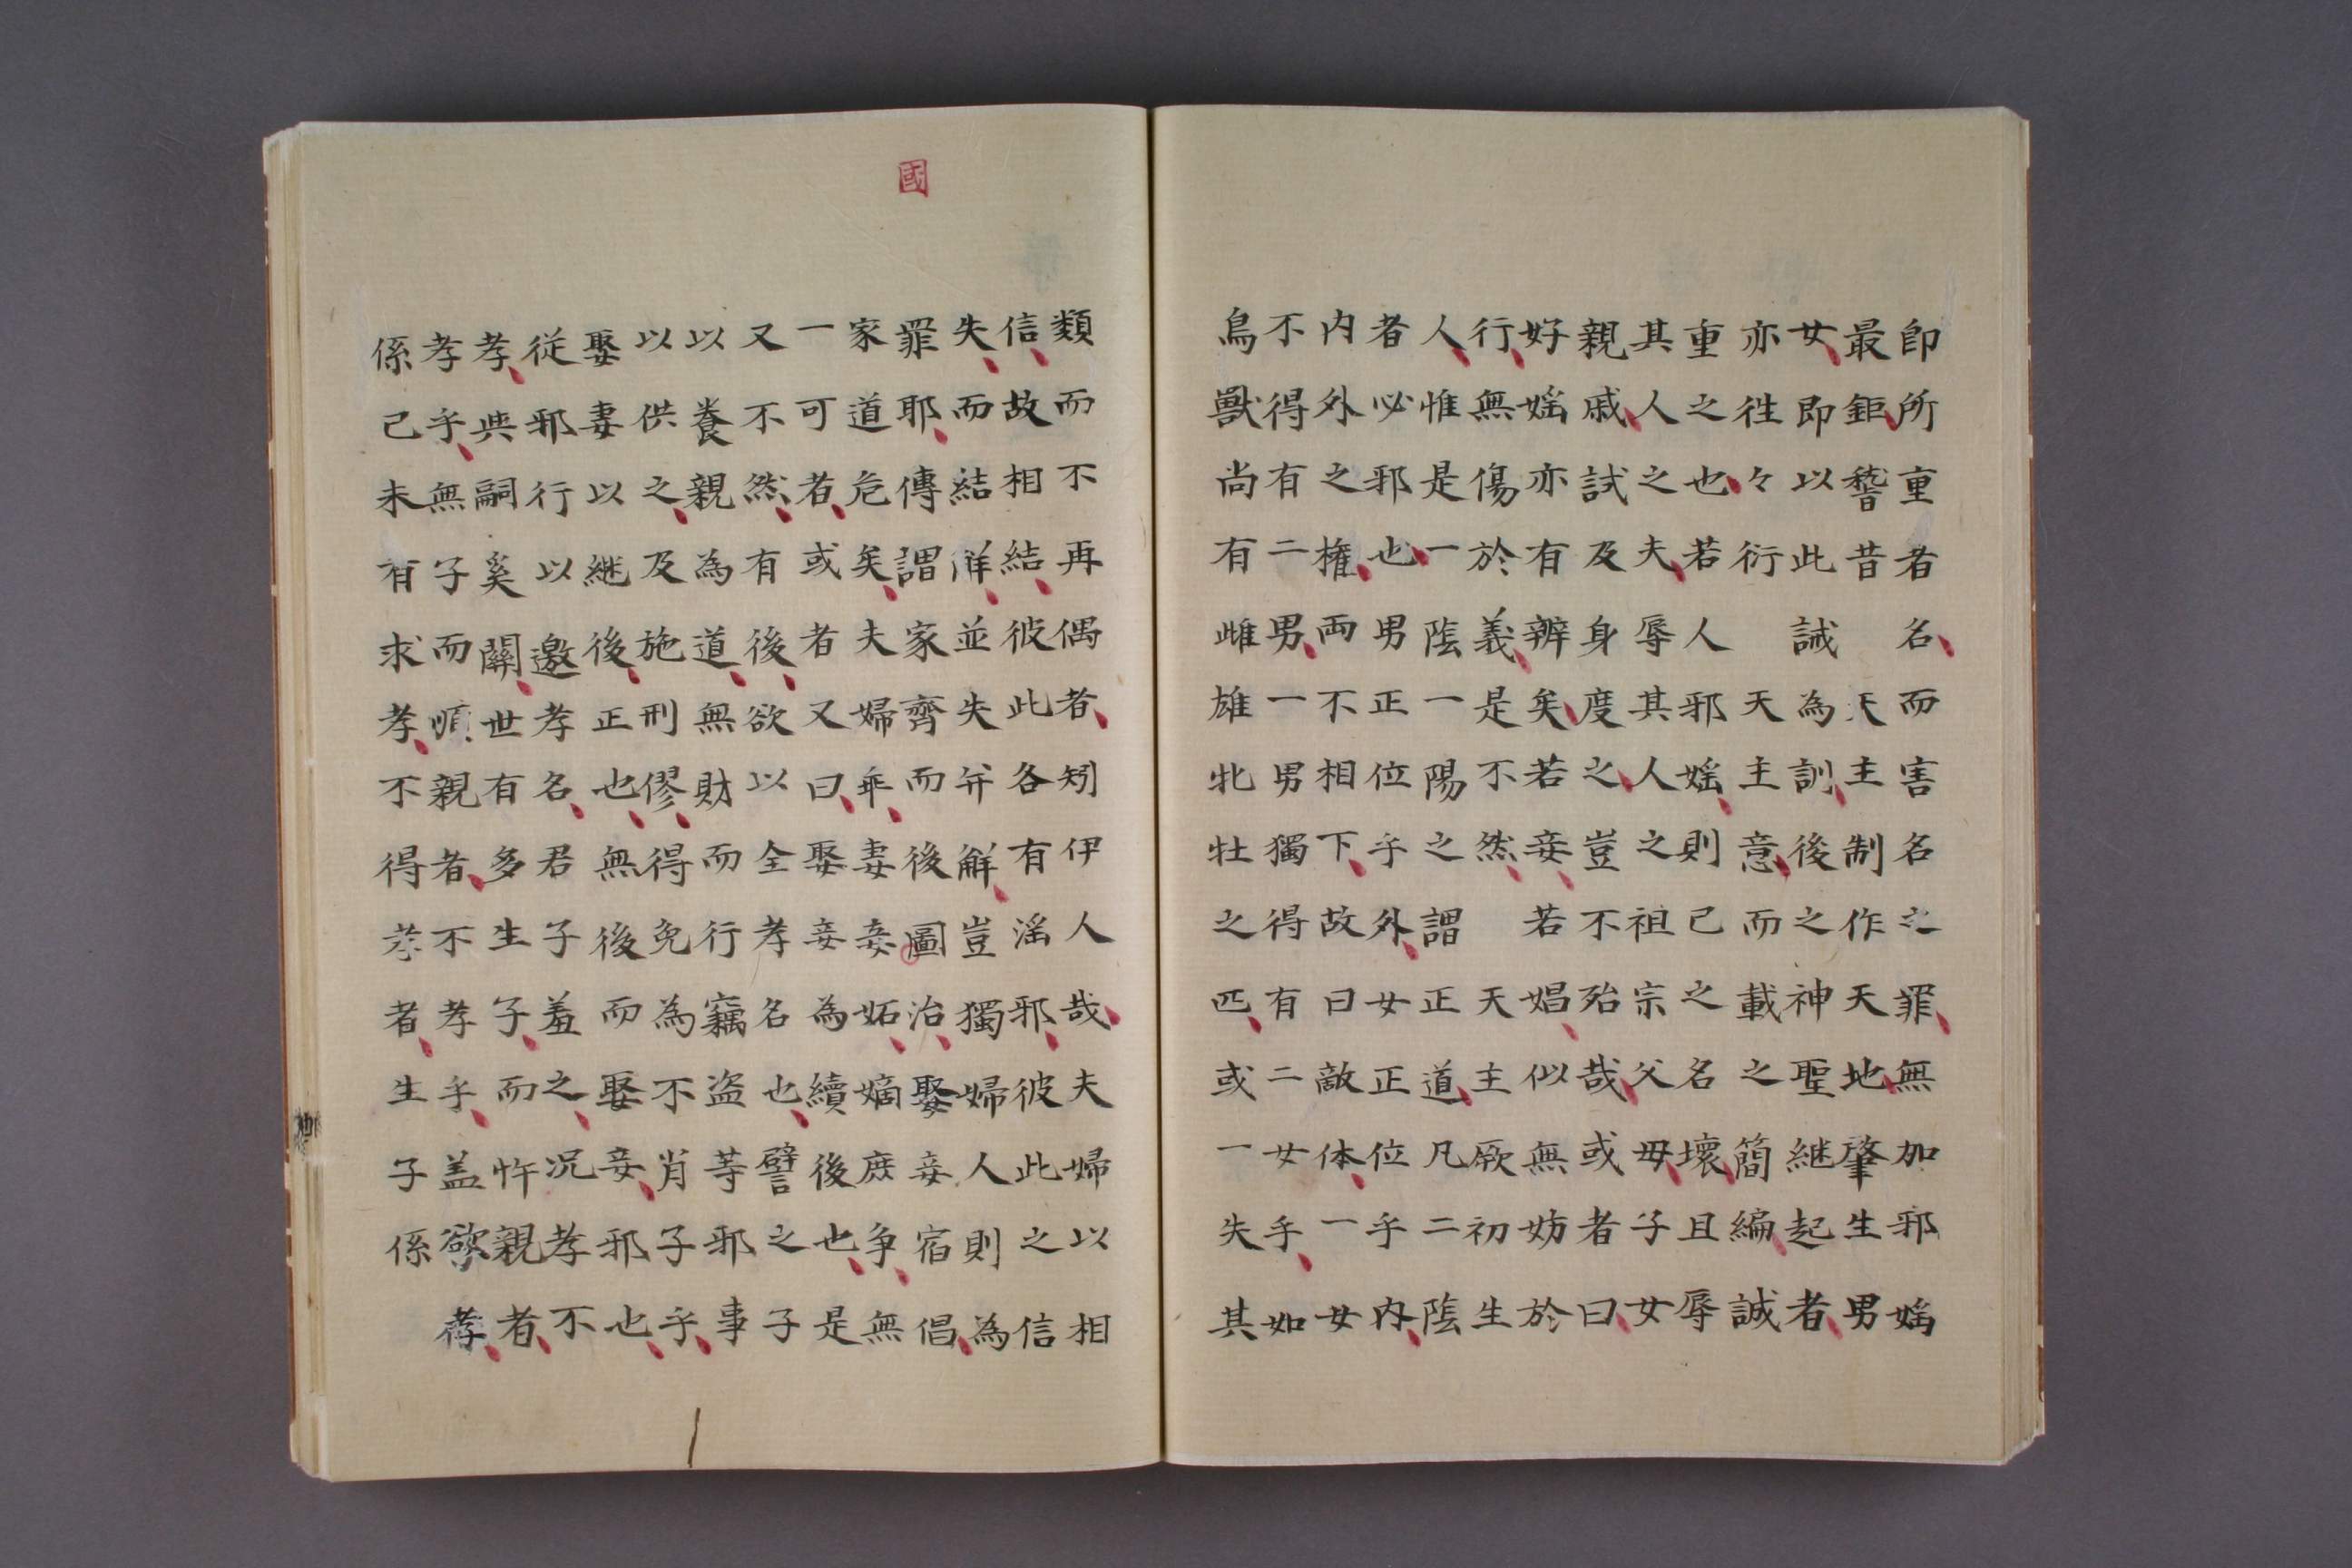 即所重者名而害名之罪無加邪婬
最鉅稽昔天主制作天地肇生男
女即以此誡為訓後之神聖継起者
亦徃々衍天主意而載之簡編誠
重之也若人邪婬則己之名壞且辱
其人之夫辱其人之祖宗父母子女
親戚試及身度之豈不殆哉或者曰
好婬亦有辨矣若妾若娼似無妨於
行無傷於義是不然天主厥初生
人惟是一陰一陽之謂正道凡二陰
者必邪也男正位乎外女正位乎内
内外之權両不相下故曰敵体一女
不得有二男一男獨得有二女乎如
鳥獸尚有雌雄牝牡之匹或一失其
類而不再偶者矧伊人哉夫婦以相
信故相結彼此各有滛邪彼此之信
失而結觧並失并觧豈獨婦人則為
罪耶傳謂家齊而後圖治娶妾宿倡
家道危矣夫婦乖妻妾妬嫡庶争無
一可者或者又曰娶妾為續後也是
又不然有後欲以全孝名也譬之子
以養親為道無財而行竊盗等邪事
以供之及施刑僇得免為不肖子乎
娶妻以継後正也無後而娶妾邪也
従邪行以邀孝名君子羞之况孝不
孝與嗣奚關世有多生子而忤親者
孝乎無子而順親者不孝乎盖欲孝
係己未有求孝不得孝者生子係
國